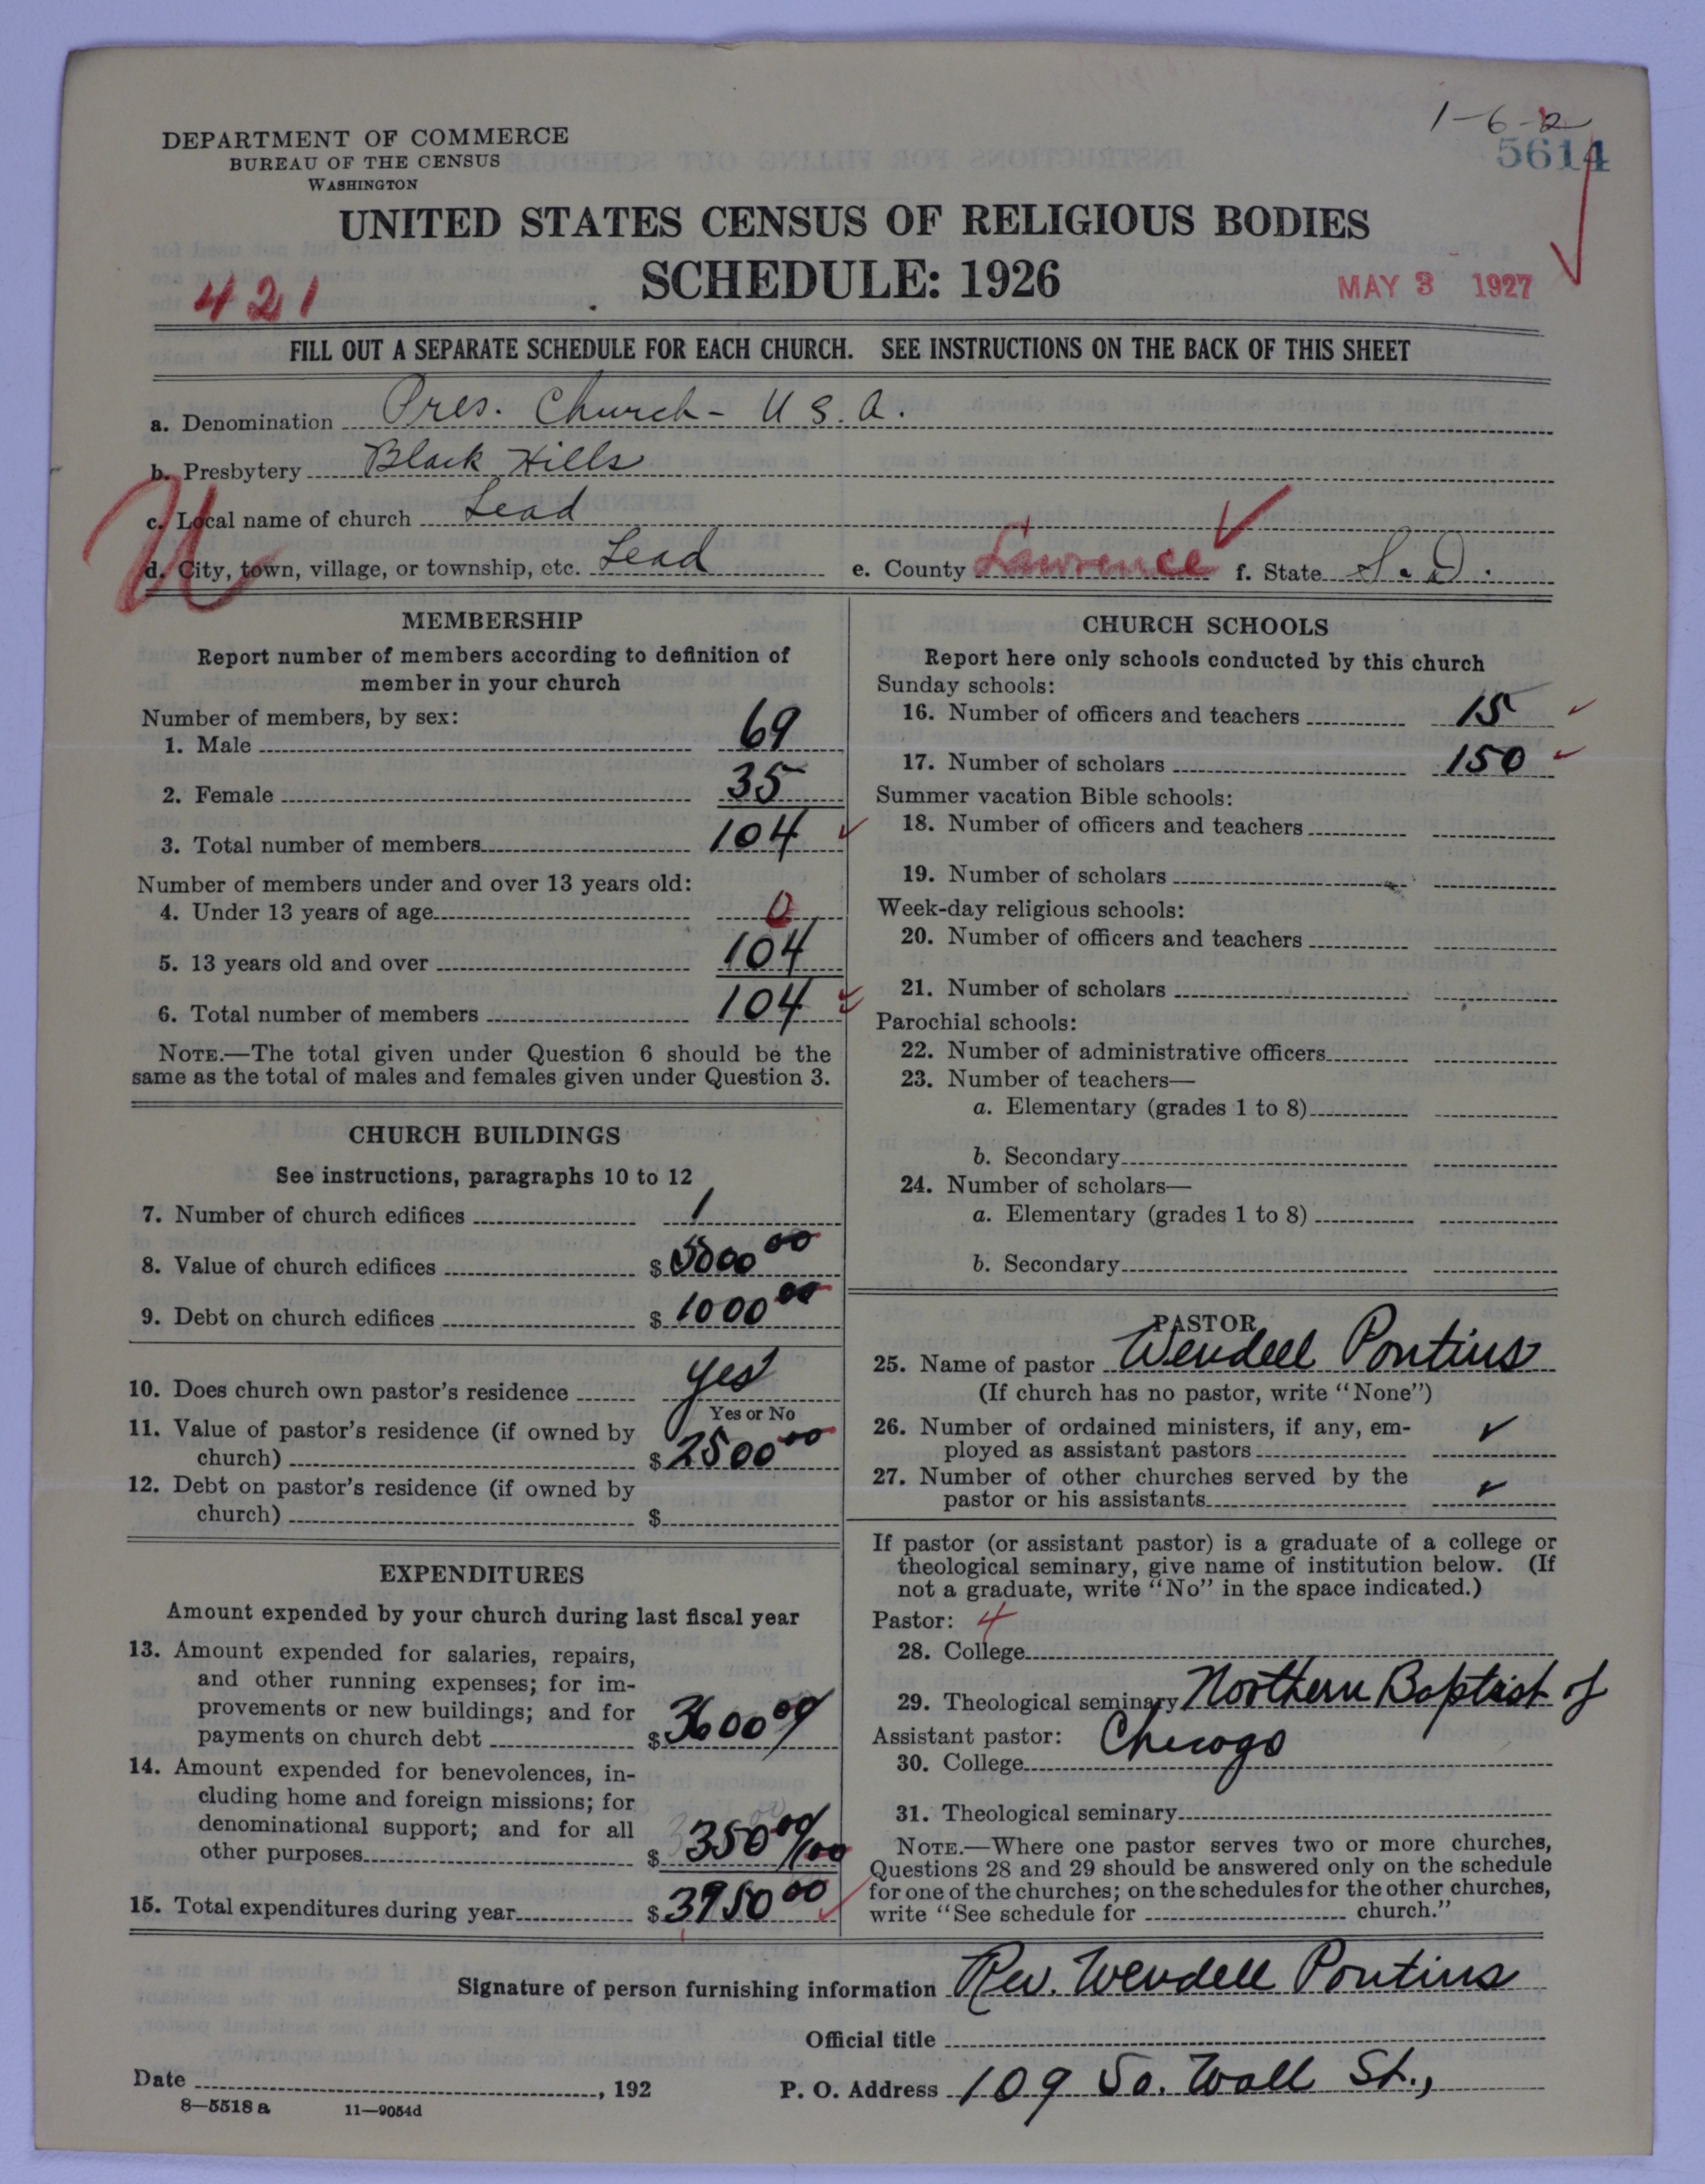 1-6-2
5614
DEPARTMENT OF COMMERCE
BUREAU OF THE CENSUS
WASHINGTON
UNITED STATES CENSUS OF RELIGIOUS BODIES
SCHEDULE: 1926
421
MAY 3 1927
FILL OUT A SEPARATE SCHEDULE FOR EACH CHURCH. SEE INSTRUCTIONS ON THE BACK OF THIS SHEET
a. Denomination Pres. Church - U S. A.
b. Presbytery Black Hills
c. Local name of church Lead
d. City, town, village, or township, etc. Lead e. County Lawrence f. State S. D.
U
MEMBERSHIP
Report number of members according to definition of
member in your church
Number of members, by sex:
1. Male 69
2. Female 35
3. Total number of members 104
Number of members under and over 13 years old:
4. Under 13 years of age 0
5. 13 years old and over 104
6. Total number of members 104
NOTE.—The total given under Question 6 should be the
same as the total of males and females given under Question 3.
CHURCH BUILDINGS
See instructions, paragraphs 10 to 12
7. Number of church edifices 1
8. Value of church edifices $5000 00
9. Debt on church edifices $1000 00
10. Does church own pastor's residence yes
Yes or No
11. Value of pastor's residence (if owned by
church) $2500 00
12. Debt on pastor's residence (if owned by
church) $
EXPENDITURES
Amount expended by your church during last fiscal year
13. Amount expended for salaries, repairs,
and other running expenses; for im-
provements or new buildings; and for
payments on church debt $3600 00
14. Amount expended for benevolences, in-
cluding home and foreign missions; for
denominational support; and for all
other purposes $350 00/100
15. Total expenditures during year $3950 00
CHURCH SCHOOLS
Report here only schools conducted by this church
Sunday schools:
16. Number of officers and teachers 15
17. Number of scholars 150
Summer vacation Bible schools:
18. Number of officers and teachers
19. Number of scholars
Week-day religious schools:
20. Number of officers and teachers
21. Number of scholars
Parochial schools:
22. Number of administrative officers
23. Number of teachers—
a. Elementary (grades 1 to 8)
b. Secondary
24. Number of scholars—
a. Elementary (grades 1 to 8)
b. Secondary
PASTOR
25. Name of pastor Wendell Pontius
(If church has no pastor, write "None")
26. Number of ordained ministers, if any, em-
ployed as assistant pastors
27. Number of other churches served by the
pastor or his assistants
If pastor (or assistant pastor) is a graduate of a college or
theological seminary, give name of institution below. (If
not a graduate, write "No" in the space indicated.)
Pastor: 4
28. College
29. Theological seminary Northern Baptist of
Assistant pastor: Chicago
30. College
31. Theological seminary
NOTE.—Where one pastor serves two or more churches,
Questions 28 and 29 should be answered only on the schedule
for one of the churches; on the schedules for the other churches,
write "See schedule for church."
Signature of person furnishing information Rev. Wendell Pontius
Official title
Date , 192 P. O. Address 109 So. Wall St.,
8—5518 a 11—9054d